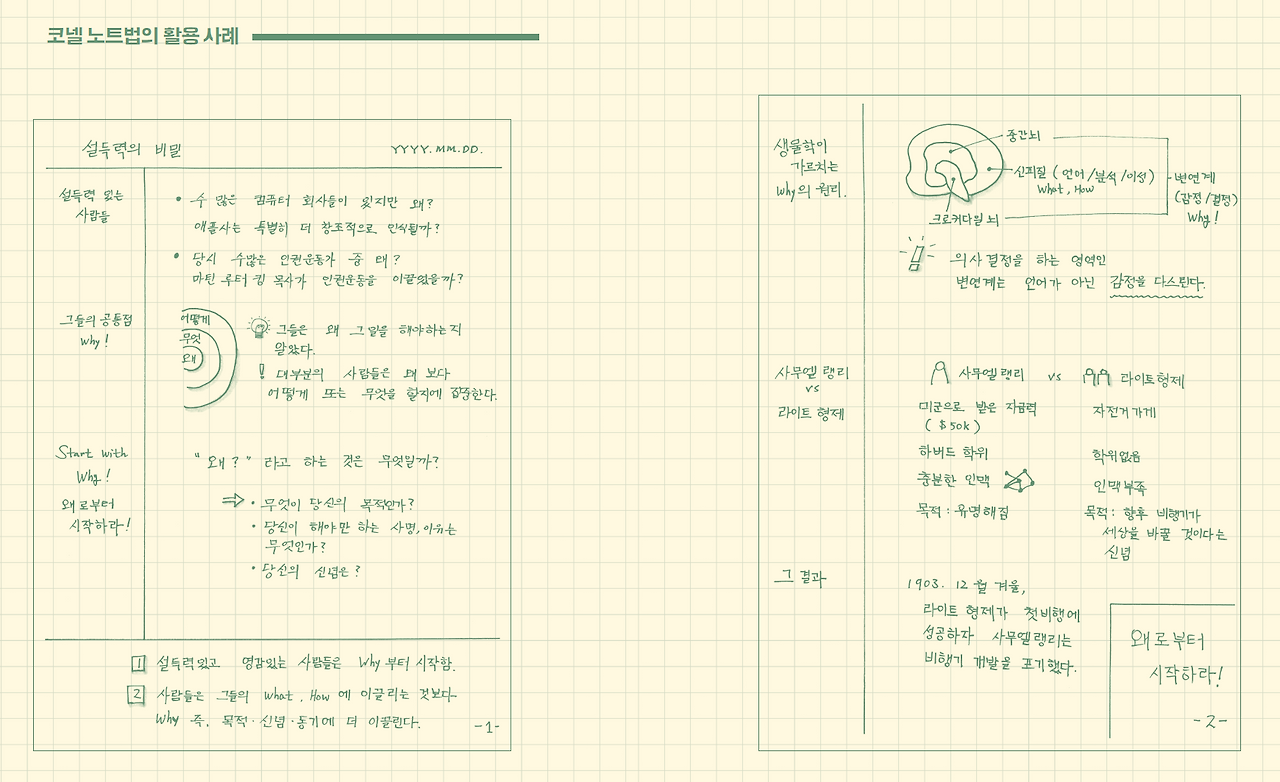 코넬 노트법의 활용 사례
설득력의 비밀
YYYY. MM. DD.
설득력 있는
사람들
• 수 많은 컴퓨터 회사들이 있지만 왜?
애플사는 특별히 더 창조적으로 인식될까?
• 당시 수많은 인권운동가 중 왜?
마틴 루터 킹 목사가 인권운동을 이끌었을까?
그들의 공통점
Why!
어떻게
무엇
왜
그들은 왜 그 일을 해야하는지
알았다.
! 대부분의 사람들은 왜 보다
어떻게 또는 무엇을 할지에 집중한다.
Start with
Why!
왜로부터
시작하라!
"왜?" 라고 하는 것은 무엇일까?
⇒ • 무엇이 당신의 목적인가?
• 당신이 해야만 하는 사명, 이유는
무엇인가?
• 당신의 신념은?
1 설득력있고 영감있는 사람들은 Why 부터 시작함.
2 사람들은 그들의 What, How 에 이끌리는 것보다
Why 즉, 목적·신념·동기에 더 이끌린다.
-1-
생물학이
가르치는
Why의 원리.
중간뇌
신피질 (언어/분석/이성)
What, How
크로커다일 뇌
변연계
(감정/결정)
Why!
의사결정을 하는 영역인
변연계는 언어가 아닌 감정을 다스린다.
사무엘 랭리
vs
라이트 형제
사무엘 랭리 vs 라이트형제
미군으로 받은 자금력
($50k)
자전거가게
하버드 학위
학위없음
충분한 인맥
인맥부족
목적 : 유명해짐
목적 : 향후 비행기가
세상을 바꿀 것이다는
신념
그 결과
1903. 12월 겨울,
라이트 형제가 첫비행에
성공하자 사무엘랭리는
비행기 개발을 포기했다.
왜로부터
시작하라!
-2-